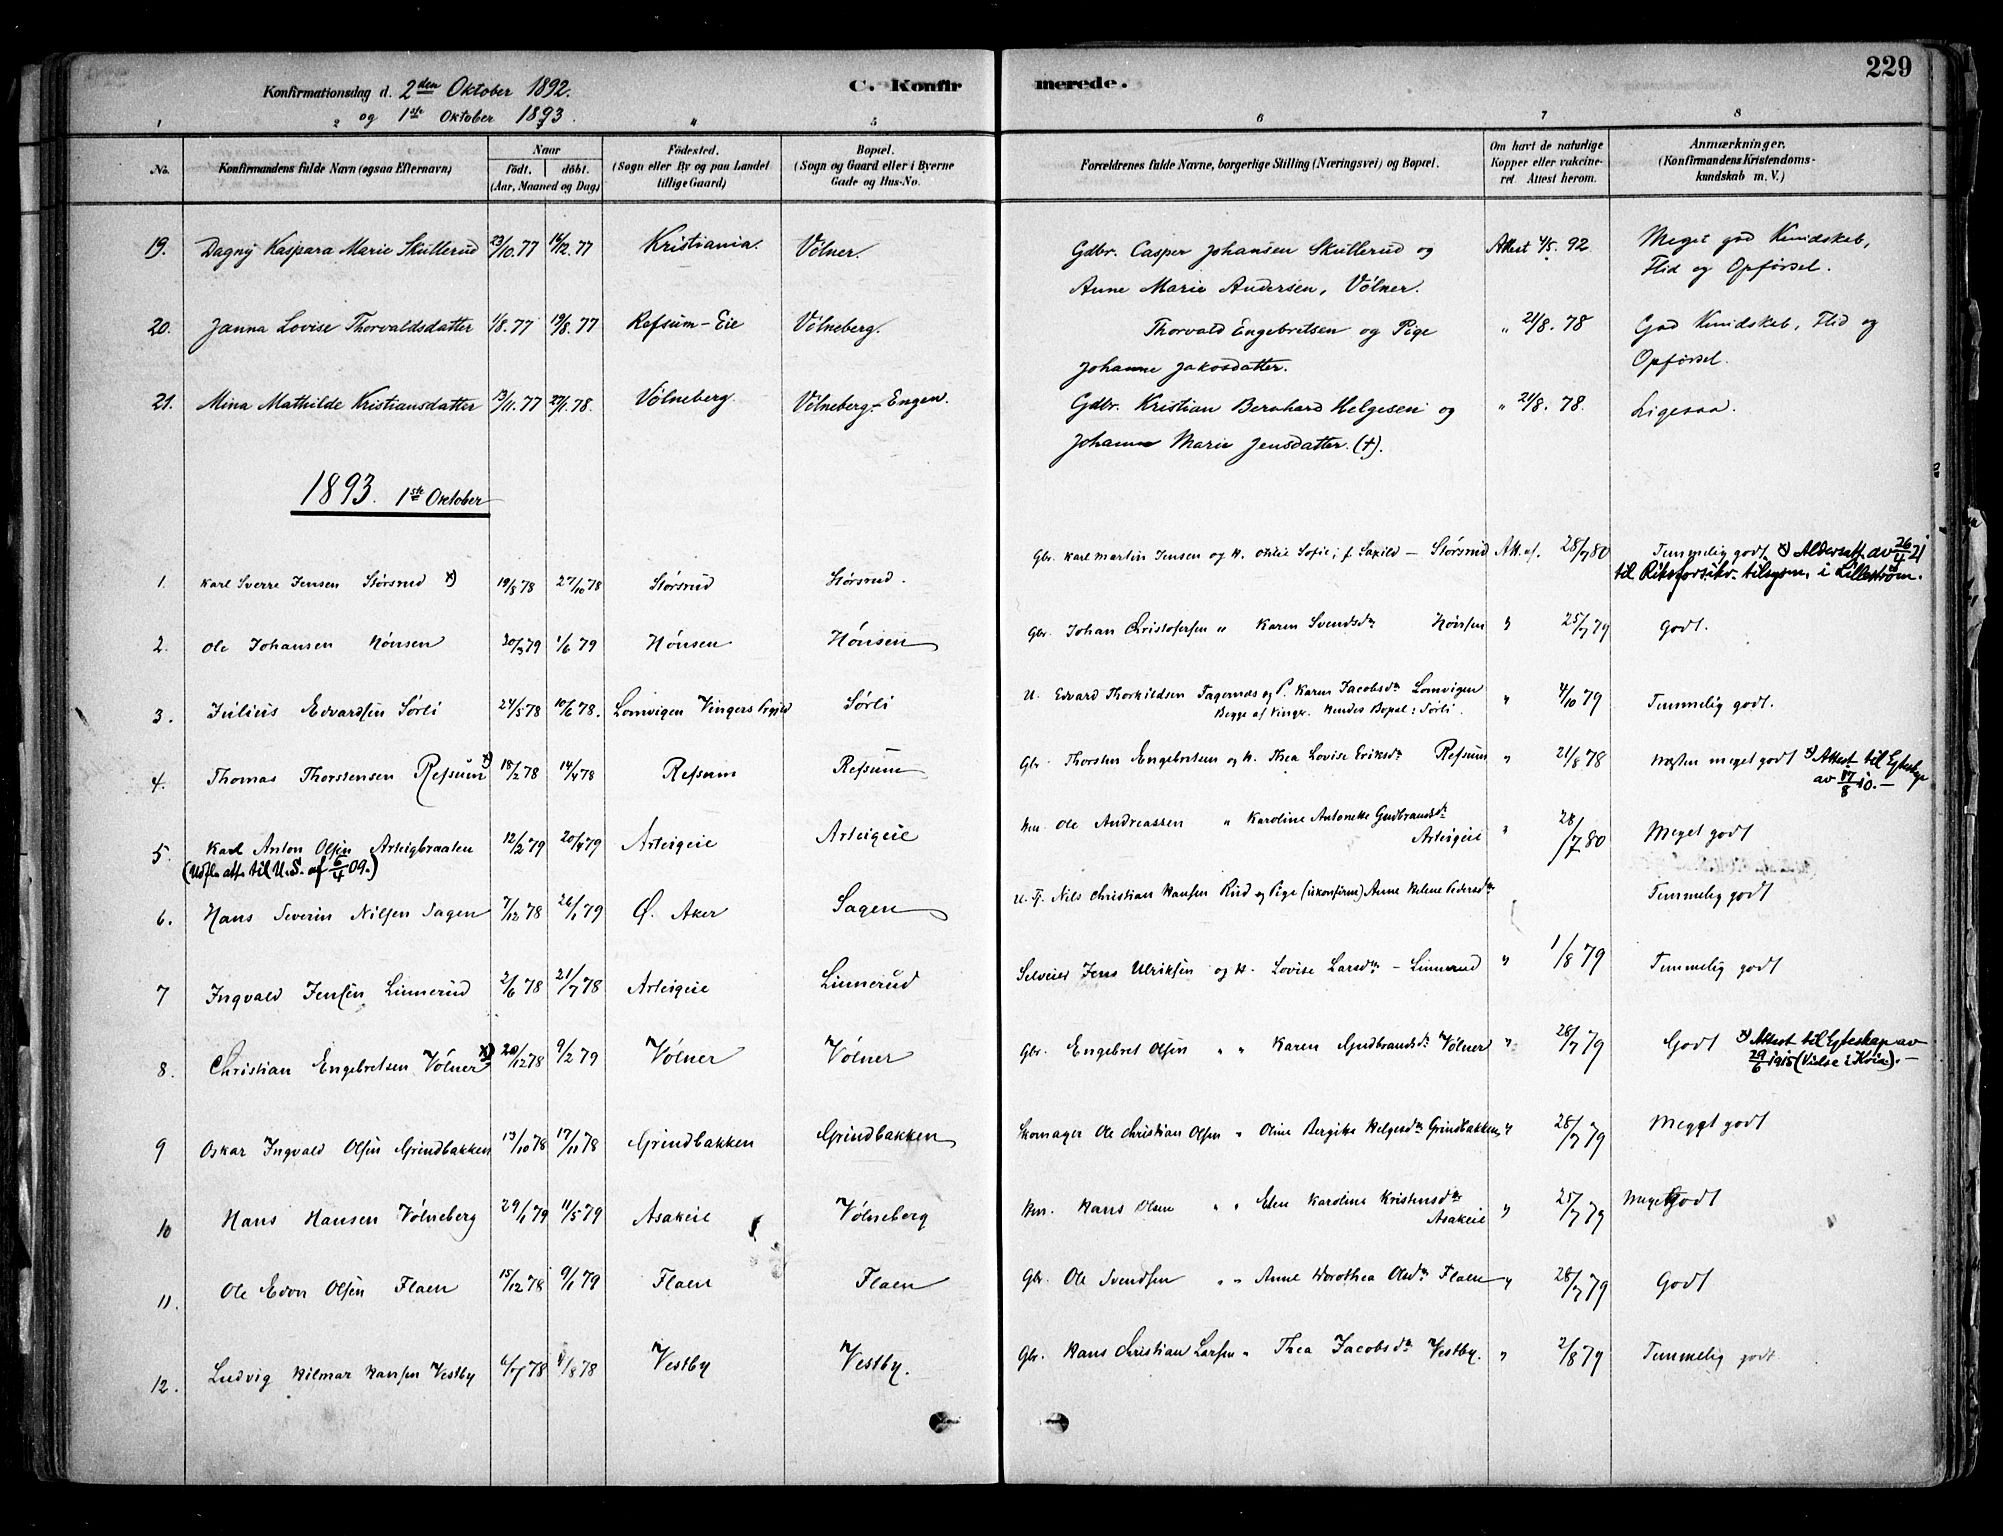 229
Konfirmationsdag d. 2den Oktober 1892.
og 1ste Oktober 1893.
C. Konfirmerede.
1 2 4 5 6 7 8
No. Konfirmandens fulde Navn (ogsaa Efternavn) Naar födt. döbt. (Aar, Maaned og Dag) Födested. (Sogn eller By og paa Landet tillige Gaard) Bopæl. (Sogn og Gaard eller i Byerne Gade og Hus-No. Forældrenes fulde Navne, borgerlige Stilling (Næringsvei) og Bopæl. Om havt de naturlige Kopper eller vakcineret Attest herom. Anmærkninger. (Konfirmandens Kristendomskundskab m. V.)
19. Dagny Kaspara Marie Skullerud 23/10.77 16/12.77 Kristiania. Völner. Gdbr. Casper Johansen Skullerud og Attest 4/5. 92 Meget god Kundskab,
Anne Marie Andersen, Völner. Flid og Opførsel.
20. Janna Lovise Thorvaldsdatter 1/8.77 19/8.77 Refsum-Eie Völneberg. Thorvald Engebretsen og Pige " 21/8. 78 God Kundskab, Flid og
Johanne Jakobsdatter. Opførsel.
21. Mina Mathilde Kristiansdatter 13/11.77 27/1.78. Völneberg. Völneberg-Engen. Gdbr. Kristian Bernhard Helgesen og " 21/8. 78. Ligesaa.
Johanne Marie Jensdatter. (+).
1893. 1ste Oktober
1. Karl Sverre Jensen Störsrud x) 19/8 78 27/10 78 Störsrud Störsrud. Gbr. Karl Martin Jensen og H. Sofie, f. Saxild - Störsrud Att. af. 28/7 80 Temmelig godt. x) Aldersatt. av 26/4 21
til Riksforsikr. tilsynsm. i Lilleström.
2. Ole Johansen Hönsen 20/3 79 1/6 79 Hönsen Hönsen Gbr. Johan Christofersen " Karen Svendsdr Hönsen " 25/7 79 Godt.
3. Julius Edvardsen Sörli 24/5 78 10/6 78. Lomvigen Vingers Sörli U. Edvard Thorkildsen Tagernæs og P. Karen Jacobsdr Lomvigen " 4/10 79 Temmelig godt.
Begge af Vinger. Hendes Bopæl: Sörli.
4. Thomas Thorstensen Refsum x) 18/2 78 14/4 78 Refsum Refsum Gbr. Thorsten Engebretsen og H. Thea Lovise Eriksdr Refsum " 21/8 78 Næsten meget godt x) Attest til Egteskap
av 17/8 10.—
5. Karl Anton Olsen Arteigbraaten 12/2 79 20/4 79 Arteigeie Arteigeie Hm. Ole Andreassen " Karoline Antonette Gudbrandsdr " 28/7 80 Meget godt
(Udfl. att. til U.S. af 6/4 09.) Arteigeie
6. Hans Severin Nilsen Sagen 7/12 78 26/1 79 Ö. Aker Sagen U. Fj. Nils Christian Hansen Rud og Pige (ukonfirm) Anne Helene Pedersdr Temmelig godt
7 Ingvald Jensen Linnerud 2/6 78 21/7 78 Arteigeie Linnerud Selveier Jens Ulriksen og H. Lovise Larsdr - Linnerud " 1/8 79 Temmelig godt
8. Christian Engebretsen Völner x) 20/12 78 9/2 79 Völner Völner Gbr. Engebret Olsen " " Karen Gudbrandsdr Völner " 28/7 79 Godt x) Attest til Egteskap av
29/6 1915 (Vielse i Kr.ia).—
9 Oskar Ingvald Olsen Grindbakken 13/10 78 17/11 78 Grindbakken Grindbakken Skomager Ole Christian Olsen " Oline Bergitte Helgesdr Grindbakken " 28/7 79 Meget godt
10 Hans Hansen Völneberg 29/1 79 11/5 79 Asakeie Völneberg Hm. Hans Olsen " " Elen Karoline Kristensdr " 25/7 79 Meget Godt
Asakeie
11. Ole Edvor Olsen Flaen 15/12 78 9/1 79 Flaen Flaen Gbr. Ole Svendsen " " Anne Dorothea Olsdr Flaen " 28/7 79 Godt
12. Ludvig Hilmar Hansen Vestby 6/7 78 /8 78 Vestby Vestby. Gbr. Hans Christian Larsen " Thea Jacobsdr Vestby. " 2/8 79 Temmelig godt